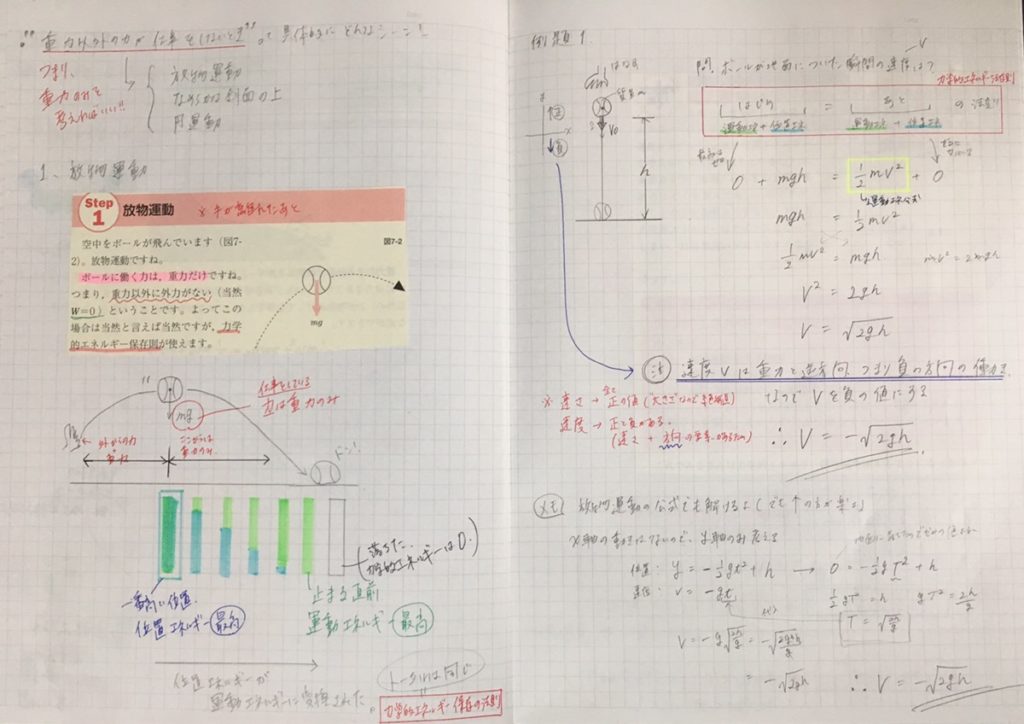 "重力以外の力が仕事をしないとき"って具体的にどんなシーン!
つまり、
重力のみを
考えればいい!!
放物運動
なめらかな斜面の上
円運動
1、放物運動
Step 1 放物運動 ※手が離れたあと
空中をボールが飛んでいます（図7-
2）。放物運動ですね。
ボールに働く力は、重力だけですね。
つまり、重力以外に外力がない（当然
W=0）ということです。よってこの
場合は当然と言えば当然ですが、力学
的エネルギー保存則が使えます。
図7-2
mg
mg
仕事をしている
力は重力のみ
ここからは
重力のみ
ドン!
一番高い位置
位置エネルギー最高
止まる直前
運動エネルギー最高
落ちた。
力学的エネルギーは0.
位置エネルギーが
運動エネルギーに変換された。
トータルは同じ
力学的エネルギー保存の法則
例題1.
問、ボールが地面についた瞬間の速度は?
V
力学的エネルギー保存則
はじめ = あと の法則
運動エネ + 位置エネ 運動エネ + 位置エネ
質量m
V0
h
x
正
負
0 + mgh = 1/2 mV² + 0
mgh = 1/2 mV²
1/2 mV² = mgh mV² = 2mgh
V² = 2gh
V = √2gh
注 速度Vは重力と逆方向、つまり負の方向の働き
なのでVを負の値にする
※ 速さ → 正の値
速度 → 正と負がある。
∴ V = −√2gh
メモ 放物運動の公式でも解けるよ
x軸の動きはないので、y軸のみ考える
位置: y = −1/2 gt² + h → 0 = −1/2 gT² + h
速度: V = −gt 1/2 gT² = h gT² = 2h
T = √2h/g
V = −g√2h/g = −√2g²h/g
= −√2gh ∴ V = −√2gh